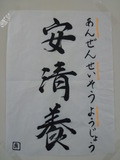 あんぜん せいそう ようじょう
安清養